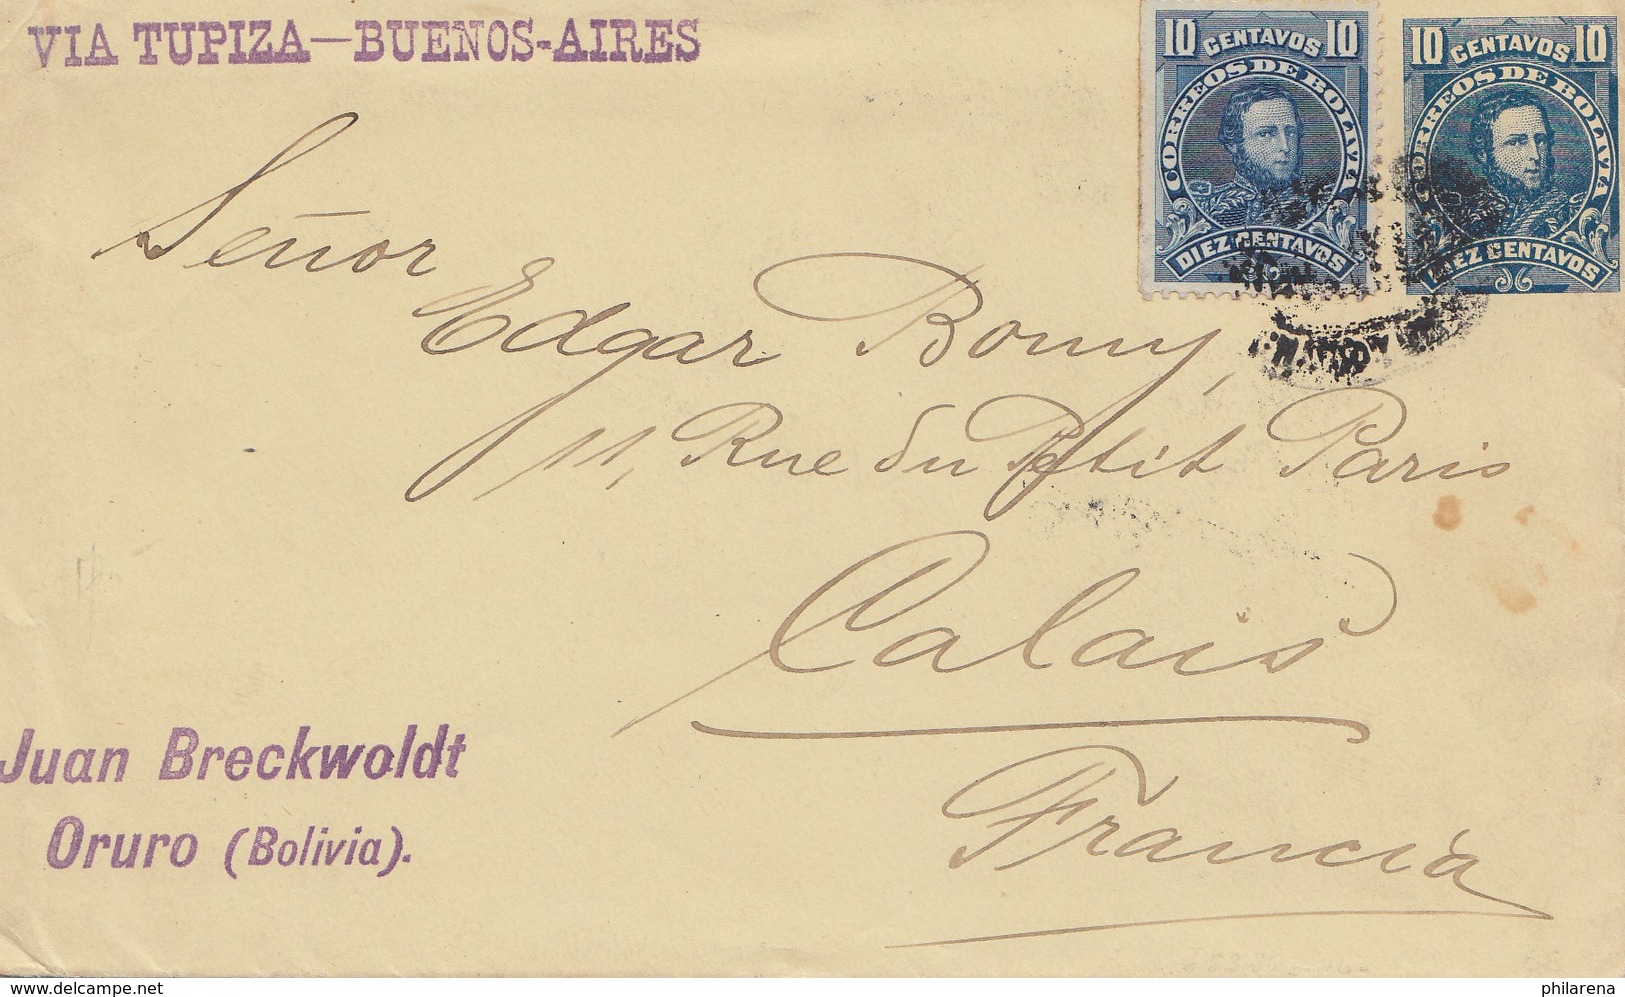 VIA TUPIZA—BUENOS-AIRES
10 CENTAVOS 10
CORREOS DE BOLIVIA
DIEZ CENTAVOS
10 CENTAVOS 10
CORREOS DE BOLIVIA
DIEZ CENTAVOS
Señor
Edgar Bomy,
11, Rue du Petit Paris
Calais
Francia
Juan Breckwoldt
Oruro (Bolivia).
www.delcampe.net
philarena